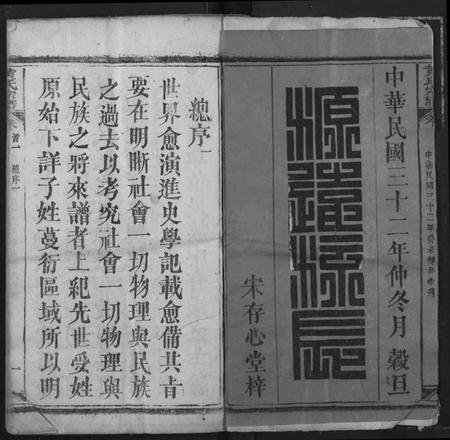 中華民國三十二年癸未
黃氏宗譜
中華民國三十二年仲冬月穀旦
源遠流長
宋存心堂梓
總序一
世界愈演進史學記載愈備其旨
要在明晰社會一切物理與民族
之過去以考究社會一切物理與
民族之將來譜者上紀先世受姓
原始下詳子姓蔓衍區域所以明
黃氏宗譜
卷首一
總序一
一